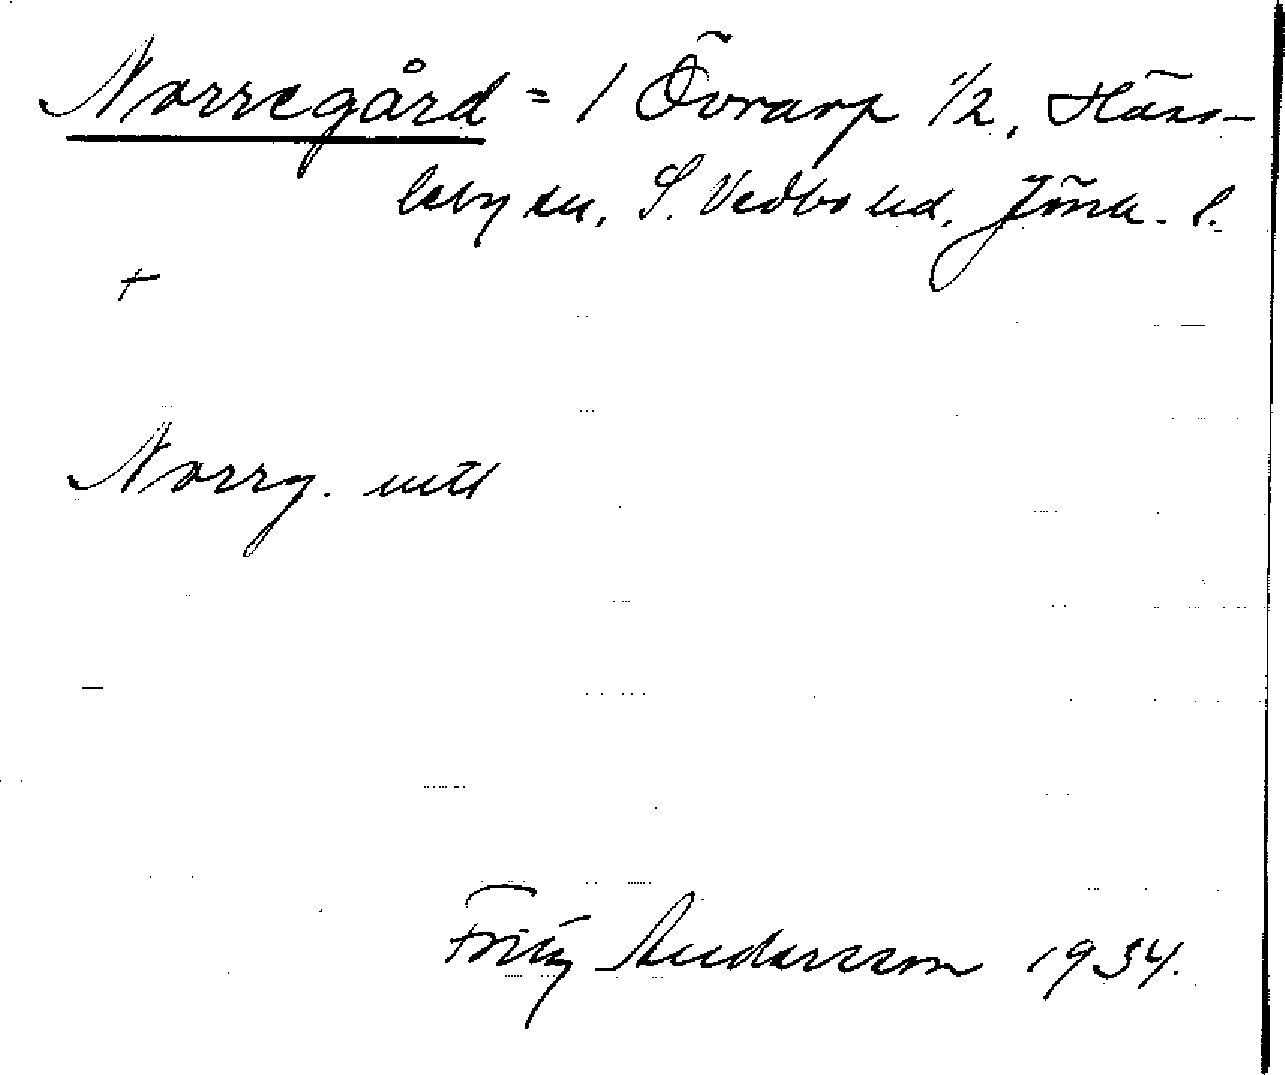 Norregård = 1 Övrarp 1/2, Häss-
leby sn, S. Vedbo hd, Jönk. l.
+
Norrg. utt
Fritz Andersson 1934.